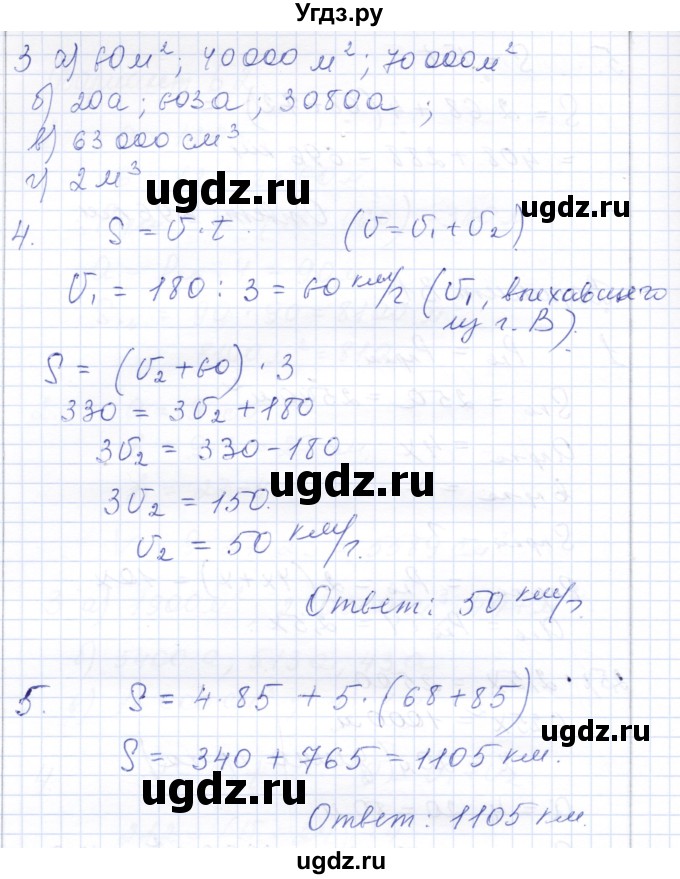 Угдз.ру
3 а) 60 м²; 40000 м²; 70000 м²
б) 20а; 603а; 3080а;
в) 63000 см³
г) 2 м³
ugdz.ru ugdz.ru
4. S = V·t. (V = V₁ + V₂)
V₁ = 180 : 3 = 60 км/ч (V₁, выехавшего
из г. В).
S = (V₂ + 60) · 3
330 = 3V₂ + 180
3V₂ = 330 - 180
ugdz.ru
3V₂ = 150.
V₂ = 50 км/ч.
Ответ: 50 км/ч.
5. S = 4·85 + 5·(68+85)
ugdz.ru
S = 340 + 765 = 1105 км.
ugdz.ru
Ответ: 1105 км.
ugdz.ru